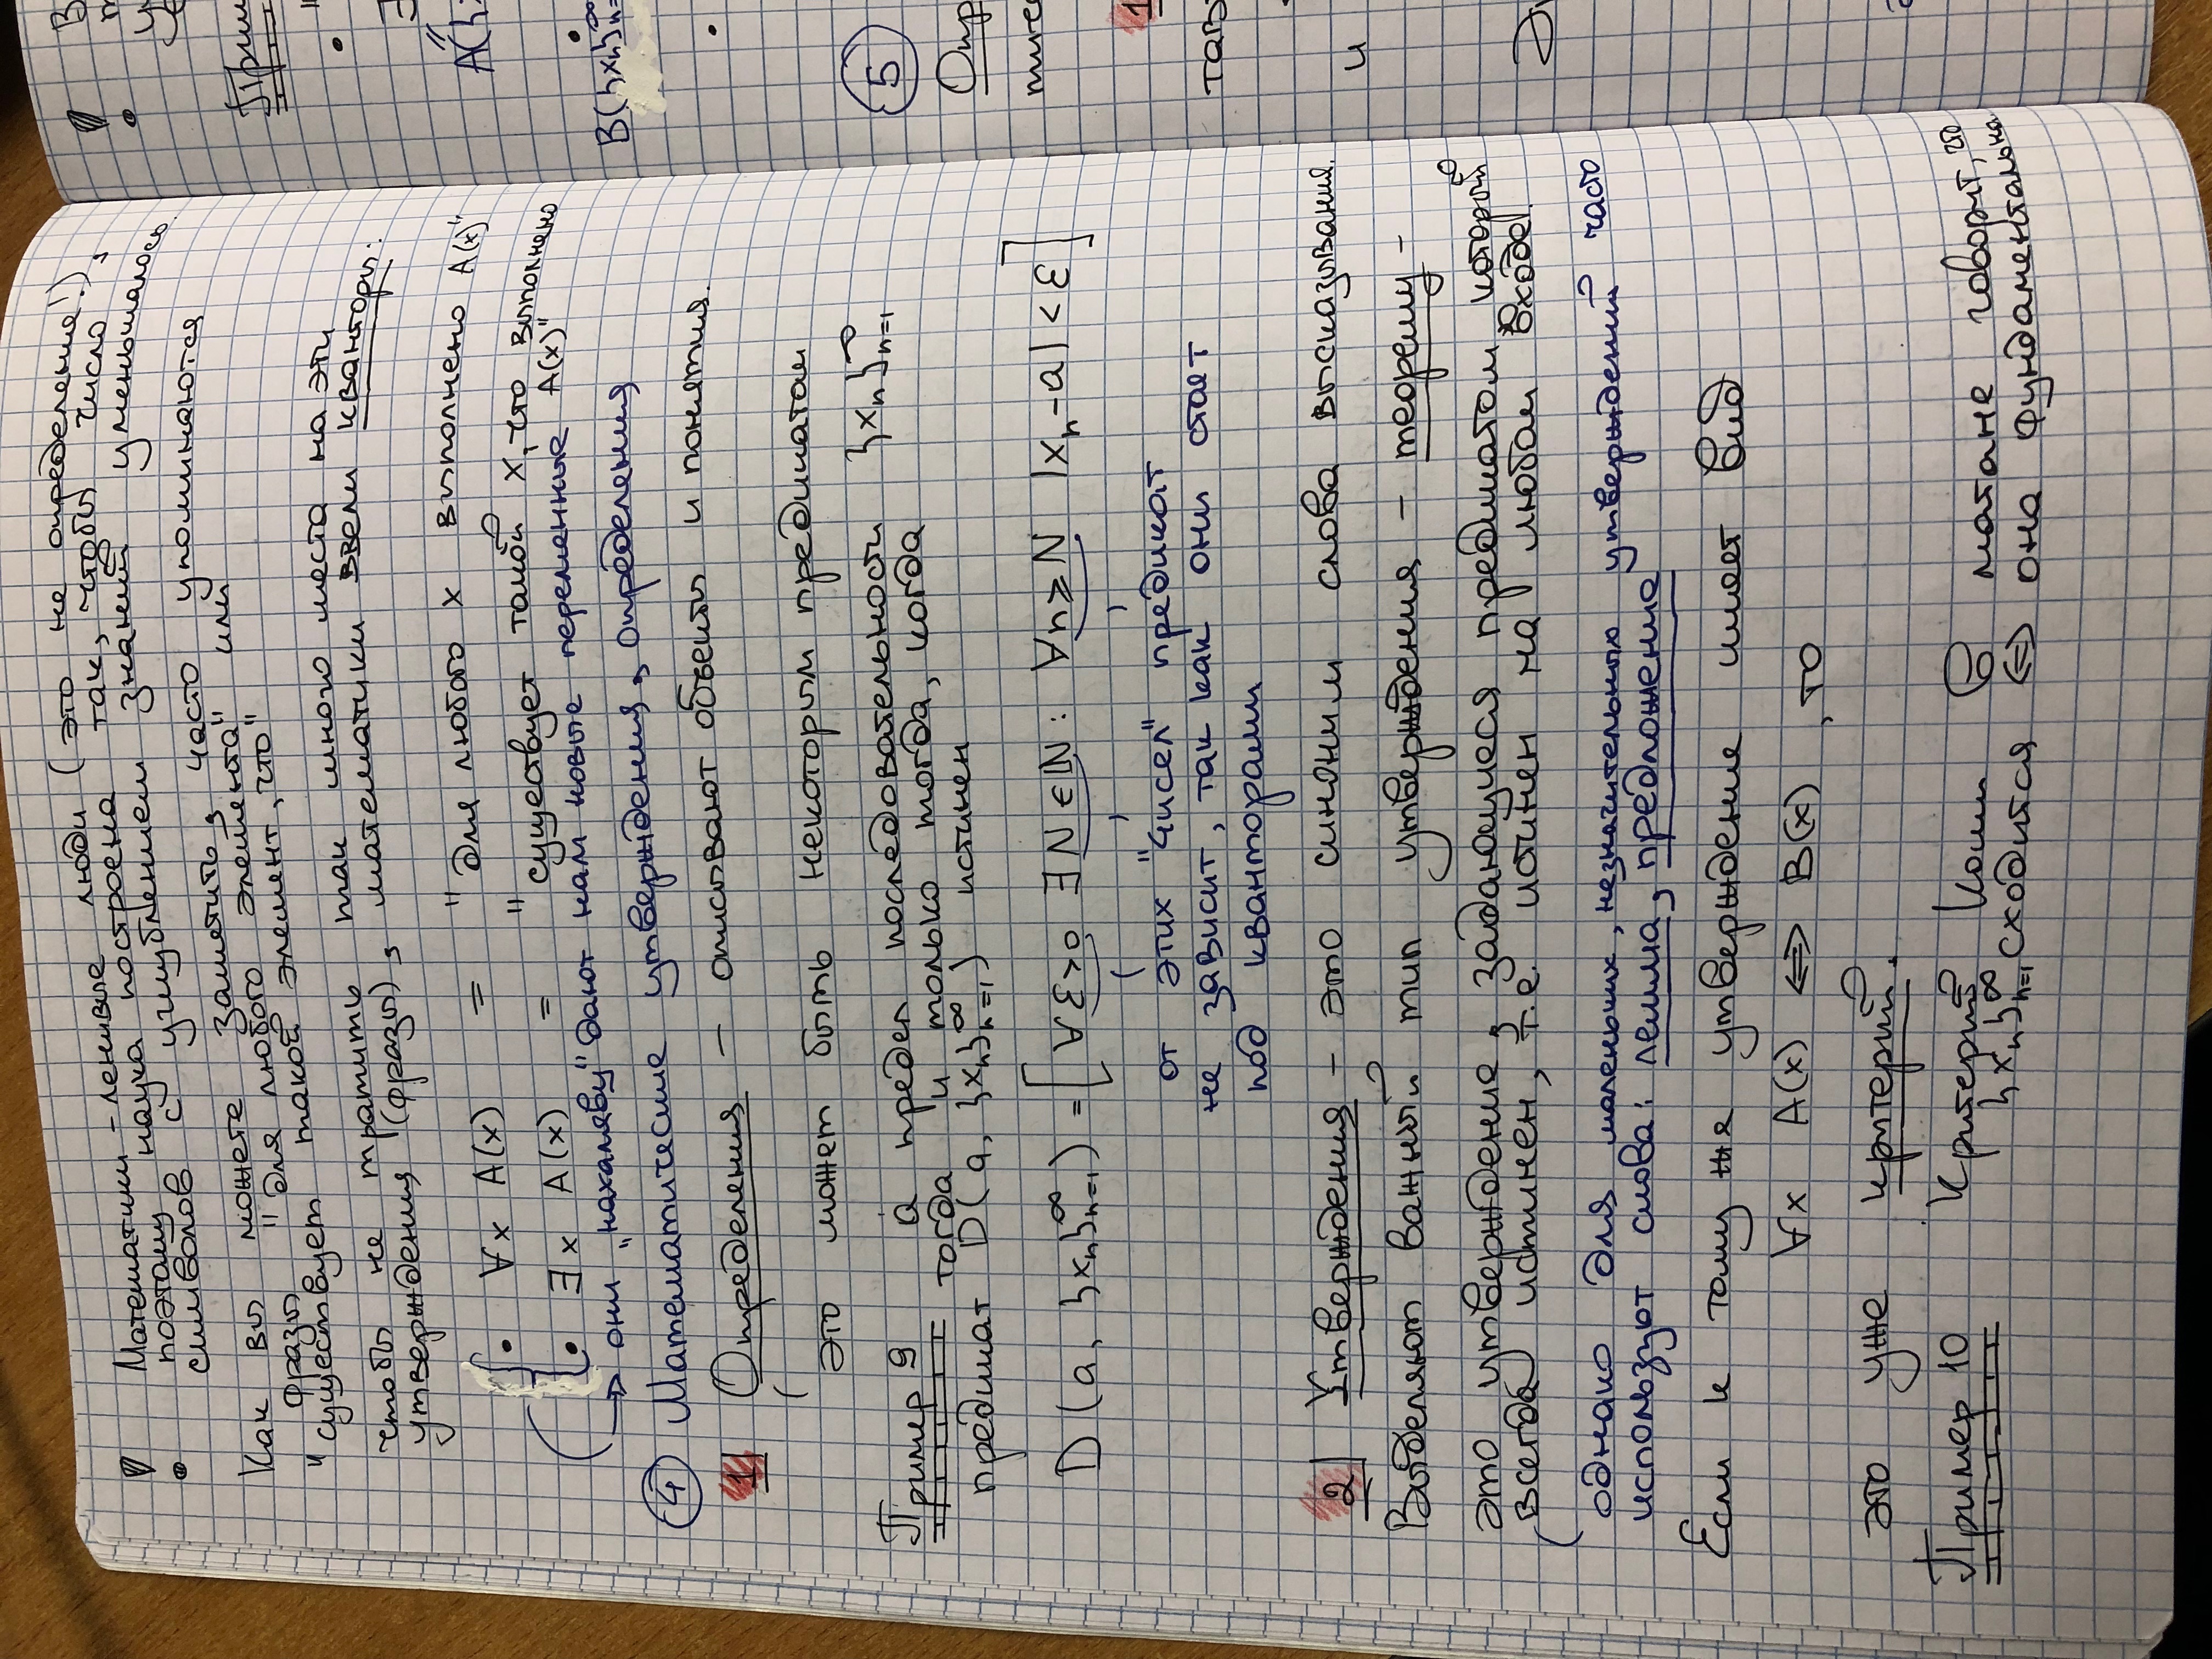 ! Математики – ленивые люди (это не определение!),
поэтому наука построена так, чтобы число
символов с углублением знаний уменьшалось.
Как вы можете заметить, часто упоминаются
фразы "для любого элемента" или
"существует такой элемент, что"
чтобы не тратить так много места на эти
утверждения (фразы), математики ввели кванторы:
• ∀x A(x) = "для любого x выполнено A(x)"
• ∃x A(x) = "существует такой x, что выполнено
A(x)"
→ они „нахаляву" дают нам новые переменные
④ Математические утверждения, определения
1 Определения – описывают объекты и понятия.
это может быть некоторым предикатом
Пример 9 a предел последовательности {xₙ}ₙ₌₁^∞
тогда и только тогда, когда
предикат D(a, {xₙ}ₙ₌₁^∞) истинен
D(a, {xₙ}ₙ₌₁^∞) = [∀ε>0 ∃N∈ℕ: ∀n⩾N |xₙ-a|<ε]
от этих "чисел" предикат
не зависит, так как они стоят
под кванторами
2 Утверждения – это синоним слова высказывания.
Выделяют важный тип утверждения – теорему –
это утверждение, задающиеся предикатом который
всегда истинен, т.е. истинен на любом входе.
однако для маленьких, незначительных утверждений часто
используют слова: лемма, предложение
Если к тому же утверждение имеет вид
∀x A(x) ⇔ B(x), то
это уже критерий.
Пример 10 Критерий Коши в матане говорит, что
{xₙ}ₙ₌₁^∞ сходится ⇔ она фундаментальна.
!
В
Прим
•
A({x
•
B({xₙ}ₙ₌^∞
•
⑤
Опр
тиче
1
тав
и